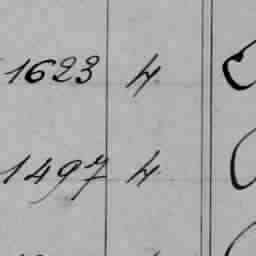 1623 4
1497 4